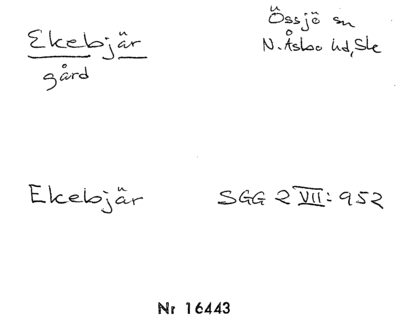 Ekebjär
gård
Össjö sn
N. Åsbo hd, Ske
Ekebjär
SGG 2 VII: 952
Nr 16443